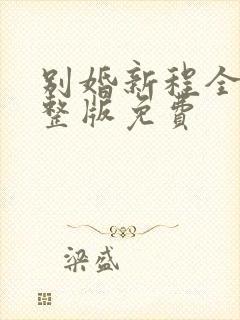 别婚新程全
整版免费
梁盛